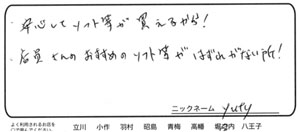 ・安心してソフト等が買えるから!
・店員さんのおすすめのソフト等がはずれがない所!
ニックネーム yuty
よく利用されるお店を
立川 小作 羽村 昭島 青梅 高幡 堀之内 八王子